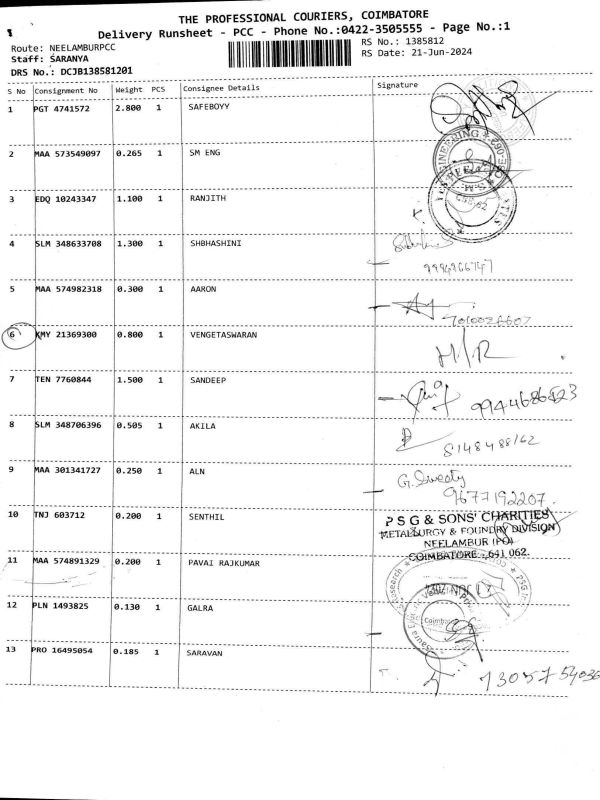 THE PROFESSIONAL COURIERS, COIMBATORE
Delivery Runsheet - PCC - Phone No.:0422-3505555 - Page No.:1
Route: NEELAMBURPCC
RS No.: 1385812
Staff: SARANYA
RS Date: 21-Jun-2024
DRS No.: DCJB138581201
S No Consignment No Weight PCS Consignee Details Signature
1 PGT 4741572 2.800 1 SAFEBOYY
2 MAA 573549097 0.265 1 SM ENG
3 EDQ 10243347 1.100 1 RANJITH
4 SLM 348633708 1.300 1 SHBHASHINI
5 MAA 574982318 0.300 1 AARON
6 KMY 21369300 0.800 1 VENGETASWARAN
H/R
7 TEN 7760844 1.500 1 SANDEEP
8 SLM 348706396 0.505 1 AKILA
9 MAA 301341727 0.250 1 ALN
G. Sweaty
9677192207
10 TNJ 603712 0.200 1 SENTHIL
P S G & SONS' CHARITIES
METALLURGY & FOUNDRY DIVISION
NEELAMBUR (PO)
COIMBATORE - 641 062.
11 MAA 574891329 0.200 1 PAVAI RAJKUMAR
12 PLN 1493825 0.130 1 GALRA
13 PRO 16495054 0.185 1 SARAVAN